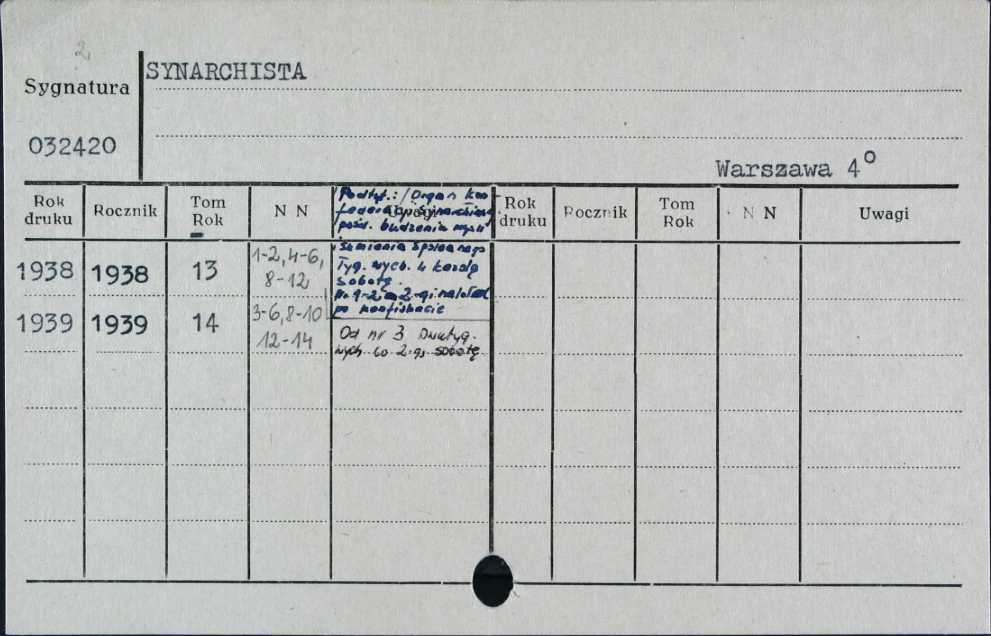 2
SYNARCHISTA
Sygnatura
032420
Warszawa 4°
Rok druku Rocznik Tom Rok N N Uwagi Rok druku Rocznik Tom Rok N N Uwagi
Podtyt.: /Organ kon
federacji Synarchicznej
pośw. budzenia myśli
sumienia społecznego
Tyg. wych. w każdą
sobotę.
Nr 1-2 2-gi nakład
po konfiskacie
1938 1938 13 1-2, 4-6,
8-12
1939 1939 14 3-6, 8-10
12-14
Od nr 3 Dwutyg.
wych co 2-gą sobotę